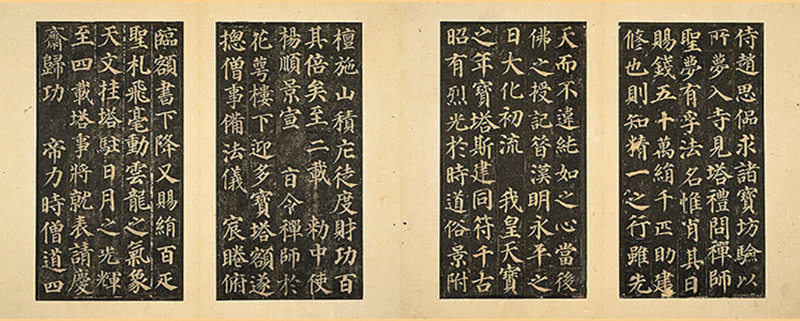 侍趙思偘求諸寶坊驗以
所夢入寺見塔禮問禪師
聖夢有孚法名惟肖其日
賜錢五十萬絹千匹助建
修也則知精一之行雖先
天而不違純如之心當後
佛之授記昔漢明永平之
日大化初流 我皇天寶
之年寶塔斯建同符千古
昭有烈光於時道俗景附
檀施山積庀徒度財功百
其倍矣至二載 勑中使
楊順景宣 旨令禪師於
花萼樓下迎多寶塔額遂
揔僧事備法儀 宸睠俯
臨額書下降又賜絹百疋
聖札飛毫動雲龍之氣象
天文挂塔駐日月之光輝
至四載塔事將就表請慶
齋歸功 帝力時僧道四